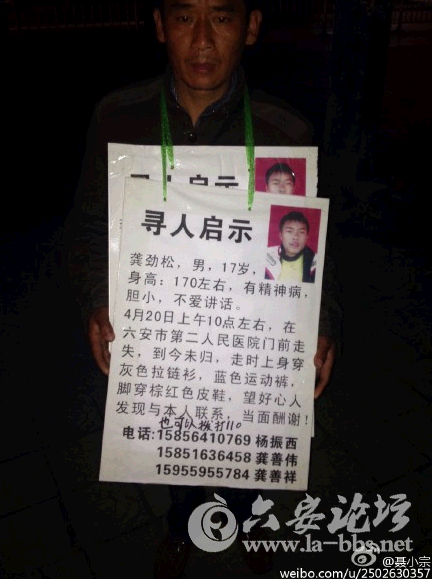 寻人启示
寻人启示
龚劲松，男，17岁，
身高：170左右，有精神病，
胆小，不爱讲话。
4月20日上午10点左右，在
六安市第二人民医院门前走
失，到今未归，走时上身穿
灰色拉链衫，蓝色运动裤，
脚穿棕红色皮鞋，望好心人
发现与本人联系，当面酬谢！
也可以拨打110
电话：15856410769 杨振西
15851636458 龚善伟
15955955784 龚善祥
六安论坛
www.la-bbs.net
@聂小宗
weibo.com/u/2502630357